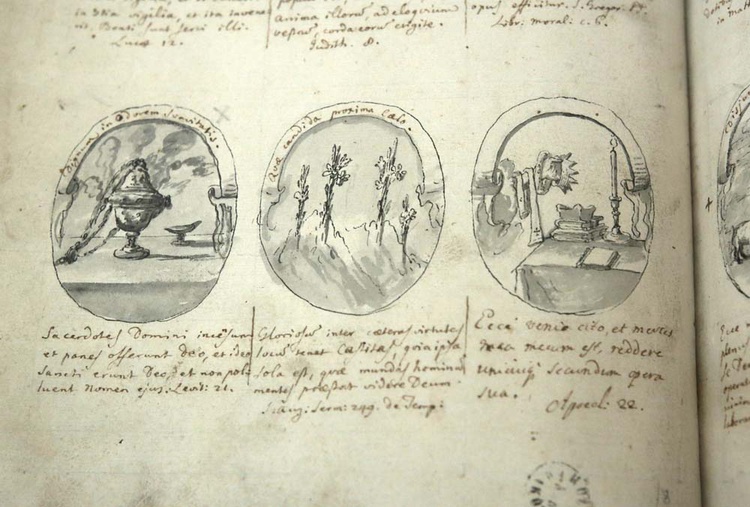 in ista vigilia, et ita invene
rit, Beati sunt servi illi.
Lucæ 12.
anima illorum, ad eloquium
vestrum, corda eorum erigite.
Judith. 8.
opus efficitur. S. Gregor.
Libr: moral: c. 6.
in odorem Suavitatis.
Quæ candida proxima Cælo.
Sacerdotes Domini incensum
et panes offerunt Deo, et ideo
Sancti erunt Deo, et non pol
luent Nomen ejus. Levit: 21.
Gloriosus inter cæteras virtutes
locus tenet Castitas, quia ipsa
sola est, quæ mundas hominum
mentes præstat videre Deum.
S. Aug: Serm: 249. de Temp:
Ecce venio cito, et merces
mea mecum est, reddere
unicuiq3 secundum opera
sua. Apocal: 22.